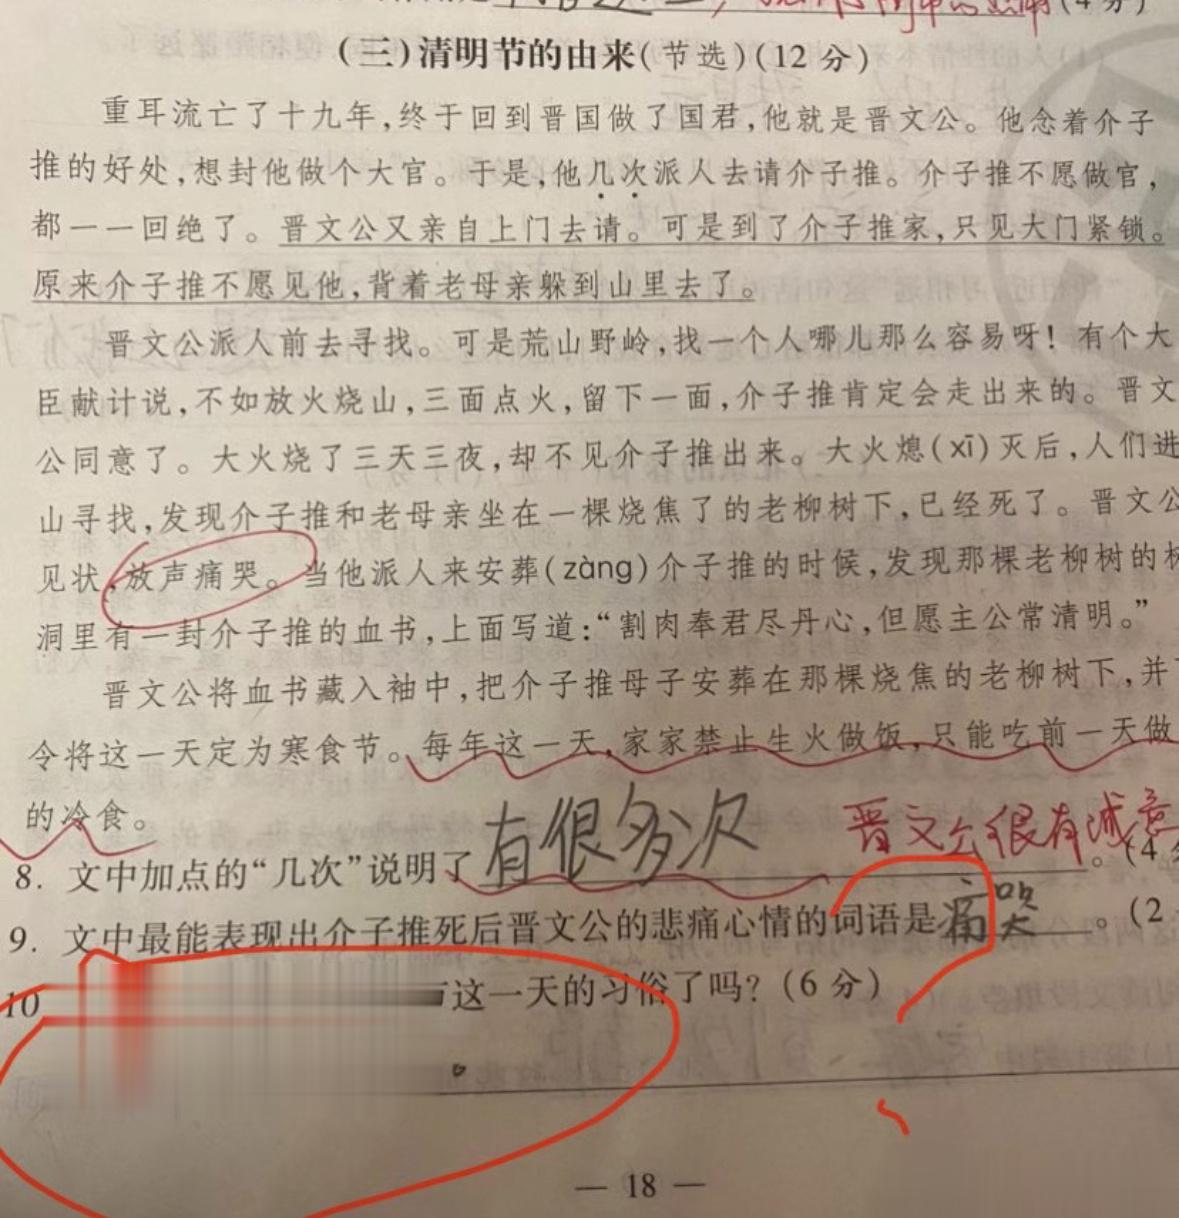 (4分)
(三)清明节的由来(节选)(12分)
重耳流亡了十九年,终于回到晋国做了国君,他就是晋文公。他念着介子
推的好处,想封他做个大官。于是,他几次派人去请介子推。介子推不愿做官,
都一一回绝了。晋文公又亲自上门去请。可是到了介子推家,只见大门紧锁。
原来介子推不愿见他,背着老母亲躲到山里去了。
晋文公派人前去寻找。可是荒山野岭,找一个人哪儿那么容易呀!有个大
臣献计说,不如放火烧山,三面点火,留下一面,介子推肯定会走出来的。晋文
公同意了。大火烧了三天三夜,却不见介子推出来。大火熄(xī)灭后,人们进
山寻找,发现介子推和老母亲坐在一棵烧焦了的老柳树下,已经死了。晋文公
见状,放声痛哭。当他派人来安葬(zàng)介子推的时候,发现那棵老柳树的树
洞里有一封介子推的血书,上面写道:“割肉奉君尽丹心,但愿主公常清明。”
晋文公将血书藏入袖中,把介子推母子安葬在那棵烧焦的老柳树下,并
令将这一天定为寒食节。每年这一天,家家禁止生火做饭,只能吃前一天做
的冷食。
8. 文中加点的“几次”说明了有很多次 晋文公很有诚意。(4
9. 文中最能表现出介子推死后晋文公的悲痛心情的词语是痛哭。(2
10 这一天的习俗了吗?(6分)
。
— 18 —